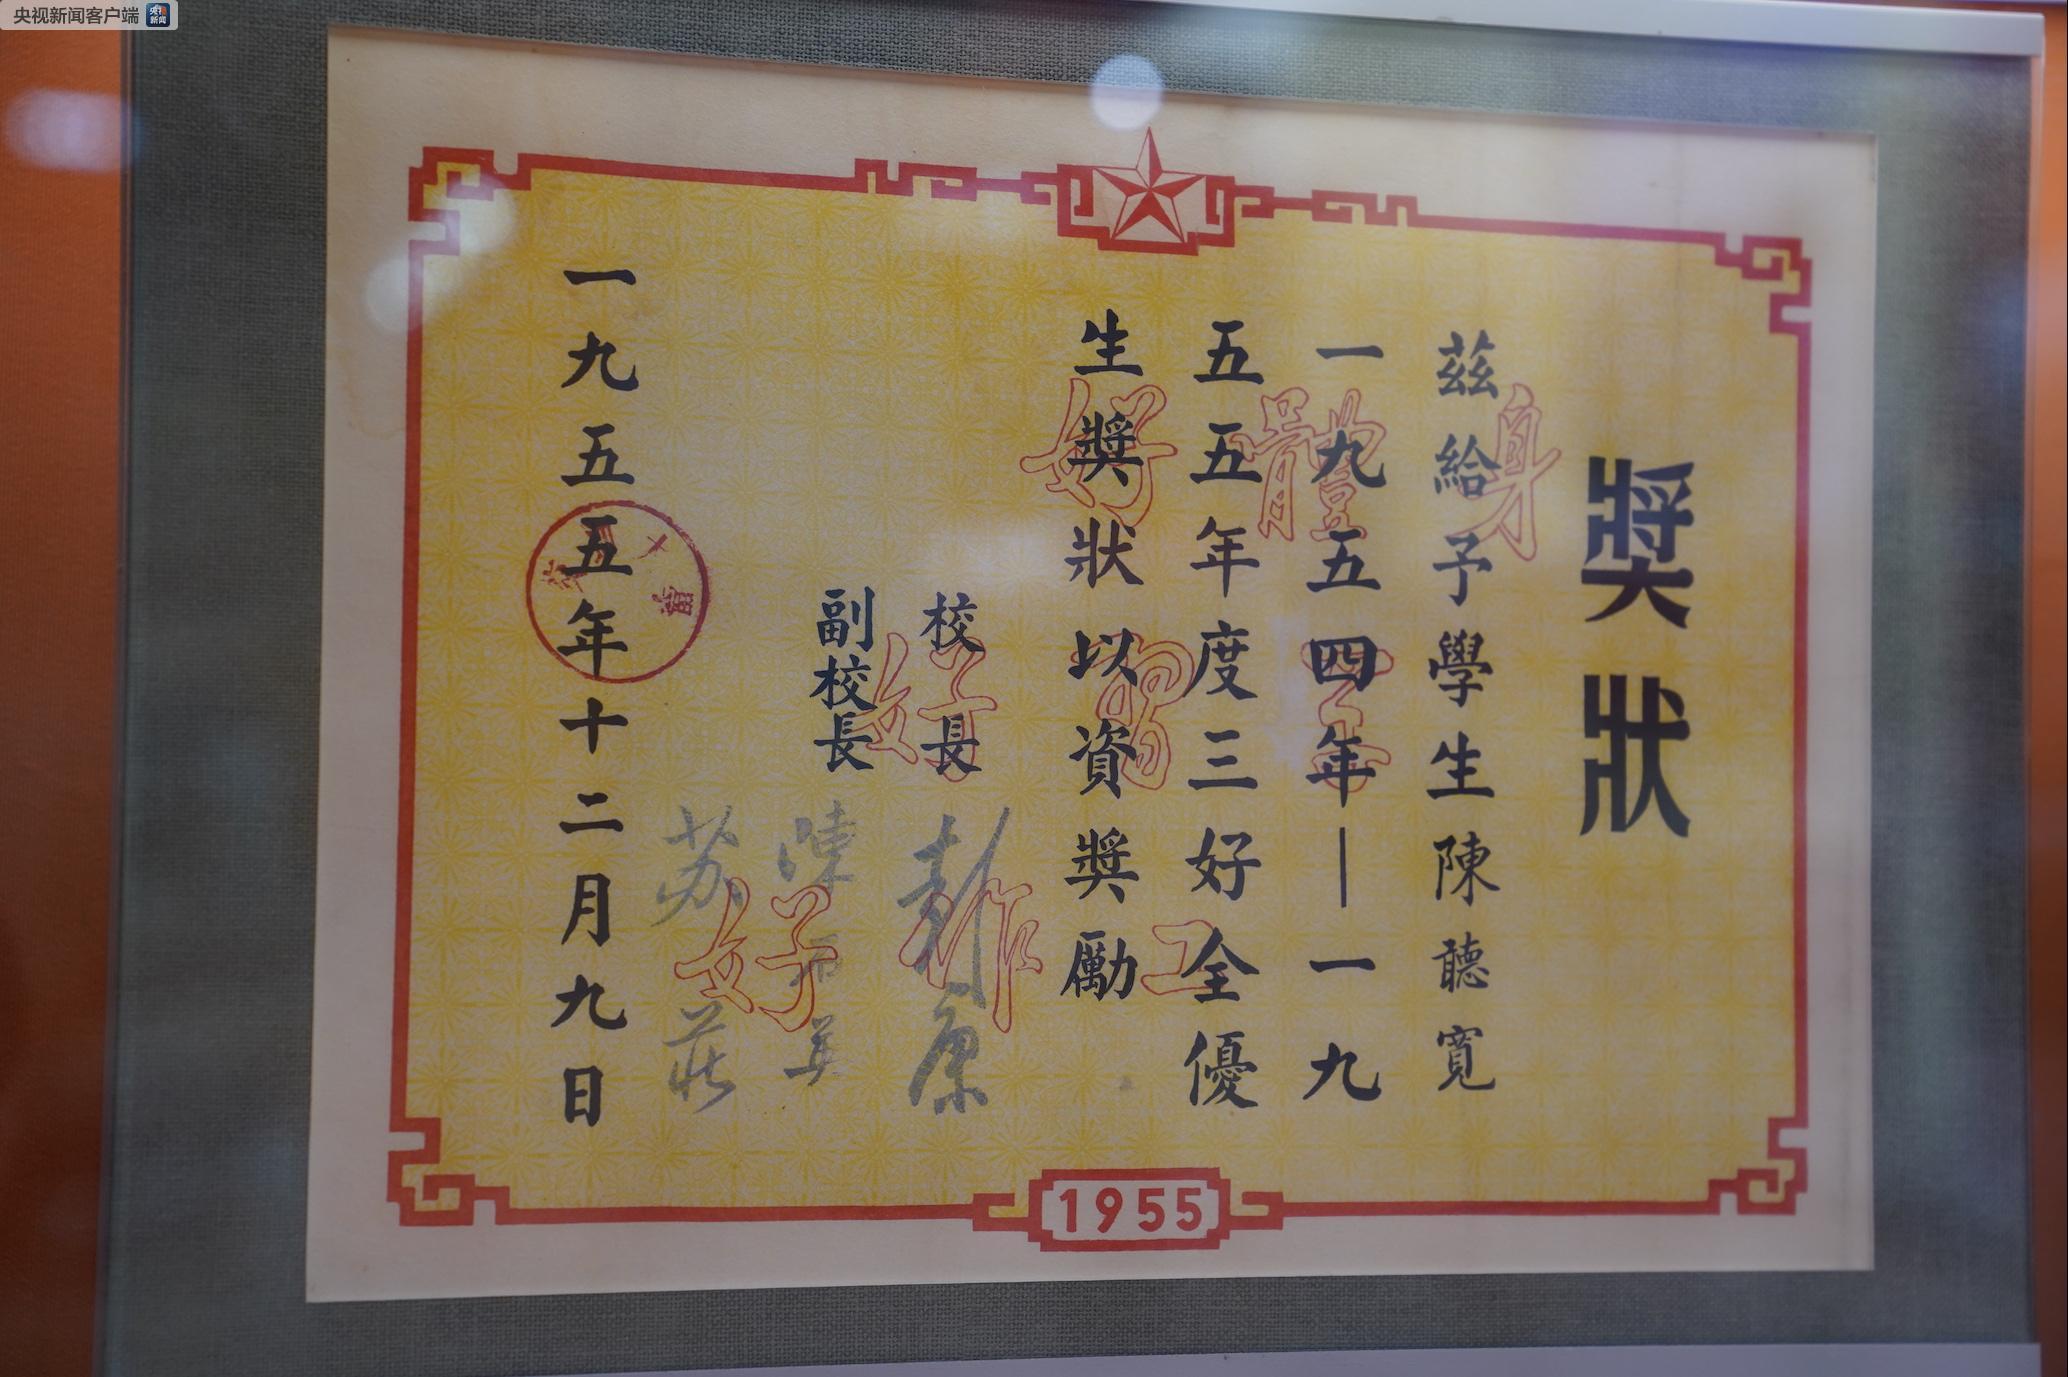 央视新闻客户端
央视
新闻
獎狀
茲給予學生陳聽寬
一九五四年—一九
五五年度三好全優
生獎狀以資獎勵
校長 彭康
副校長
陳
苏莊
一九五五年十二月九日
身體好
學習好
工作好
1955